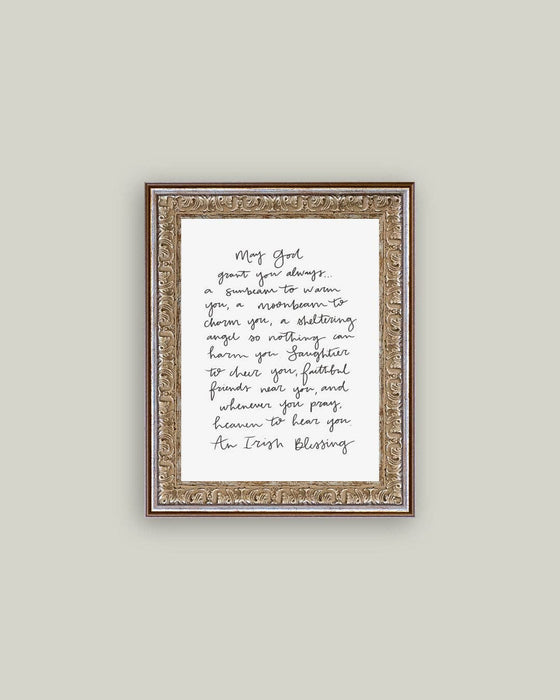 May God
grant you always...
a sunbeam to warm
you, a moonbeam to
charm you, a sheltering
angel so nothing can
harm you laughter
to cheer you, faithful
friends near you, and
whenever you pray,
heaven to hear you.
An Irish Blessing